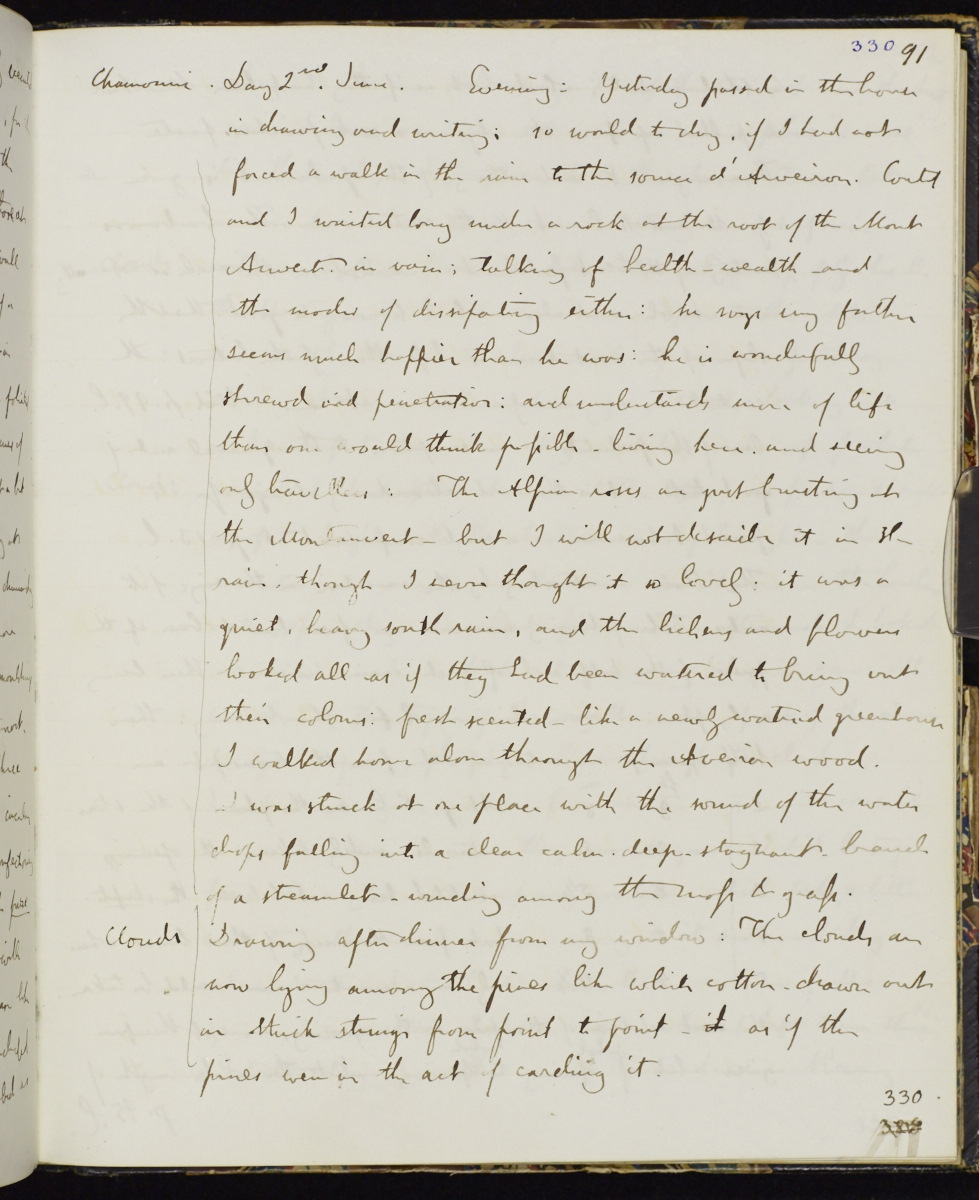 330 91
Chamouni. Day 2nd. June. Evening: Yesterday passed in the house
in drawing and writing; so would to day, if I had not
forced a walk in the rain to the source d'Arveiron. Coutet
and I waited long under a rock at the root of the Mont
Anvert. in vain; talking of health - wealth - and
the modes of dissipating either: he says my father
seems much happier than he was: he is wonderfully
shrewd and penetrative: and understands more of life
than one would think possible - living here. and seeing
only travellers: The Alpine roses are just bursting at
the Montanvert - but I will not describe it in the
rain. though I never thought it so lovely: it was a
quiet, heavy south rain, and the lichens and flowers
looked all as if they had been watered to bring out
their colours: fresh scented - like a newly watered greenhouse
I walked home alone through the Aveiron wood.
I was struck at one place with the sound of the water
drops falling into a clear calm. deep. stagnant. branch
of a streamlet - winding among the moss & grass.
Clouds Drawing after dinner from my window: The clouds are
now lying among the pines like white cotton - drawn out
in thick strings from point to point - as if the
pines were in the act of carding it.
330